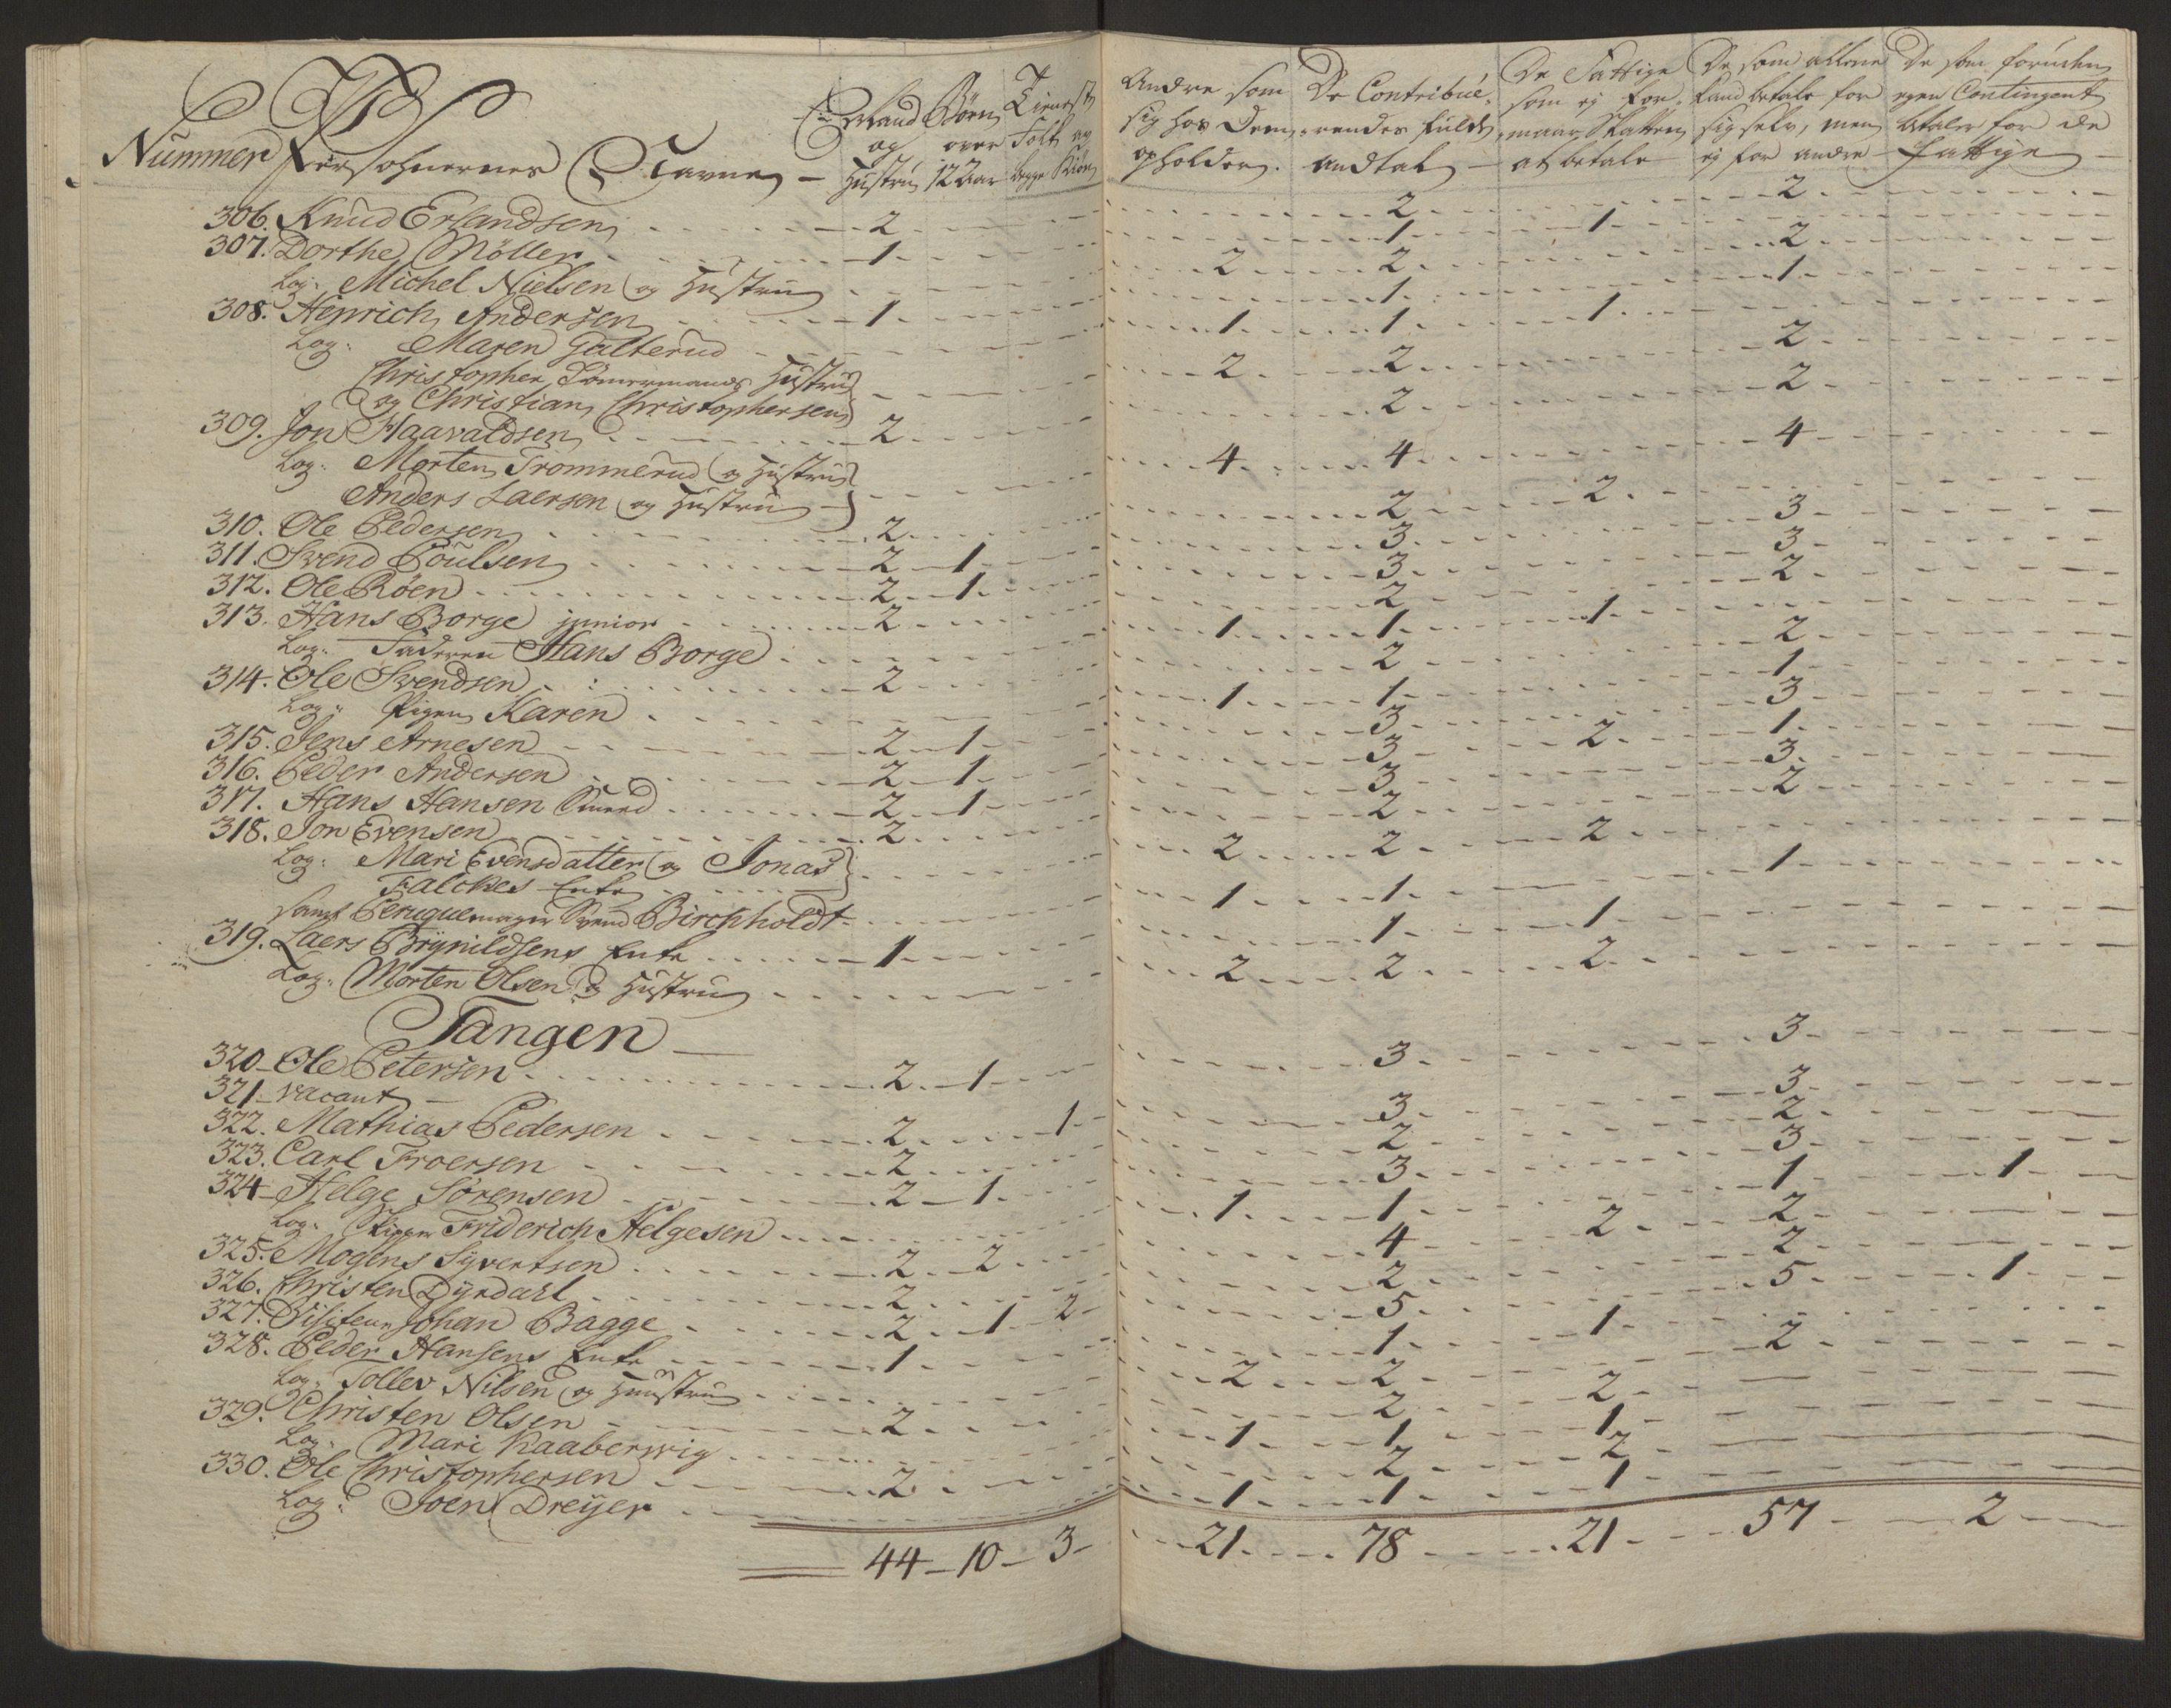 Nummer Persohnernes Navne — Mand og Hustru Börn over 12 Aar Tieneste Folk og begge Kiön Andre som sig hos Dem opholder. De Contribuerendes fulde Andtal De Fattige som ej formaar Skatten at betale De som allene kand betale for sig selv, men ej for andre De som foruden egen Contingent betaler for de Fattige
306. Knud Erlandsen 2 2 2
307. Dorthe Möller 1 1 1
Log: Michel Nielsen og Hustru 2 2 2
308. Henrich Andersen 1 1 1
Log: Maren Galterud 1 1 1
Christopher Tömermands Hustru
og Christian Christophersen 2 2 2
309. Jon Haavaldsen 2 2 2
Log: Morten Trommerud og Hustru
Anders Laersen og Hustru 4 4 4
310. Ole Pedersen 2 2 2
311. Svend Poulsen 2 1 3 3
312. Ole Röen 2 1 3 3
313. Hans Borge junior 2 2 2
Log: Faderen Hans Borge 1 1 1
314. Ole Svendsen 2 2 2
Log: Pigen Karen 1 1 1
315. Jens Arnesen 2 1 3 3
316. Peder Andersen 2 1 3 2 1
317. Hans Hansen Smed 2 1 3 3
318. Jon Evensen 2 2 2
Log: Mari Evensdatter og Jonas
Falckes Enke 2 2 2
samt Peruquemager Svend Birchholdt 1 1 1
319. Laers Brynildsens Enke 1 1 1
Log: Morten Olsen og Hustru 2 2 2
Tangen
320 Ole Petersen 2 1 3 3
321 vacant
322. Mathias Pedersen 2 1 3 3
323. Carl Froersen 2 2 2
324 Helge Sörensen 2 1 3 3
Log: Skipper Friderich Helgesen 1 1 1 1
325. Mogens Syvertsen 2 2 4 2 2
326. Christen Dyrdahl 2 2 2
327. Visiteur Johan Bagge 2 1 2 5 5 1
328. Peder Hansens Enke 1 1 1
Log: Tollev Nilsen og Huustru 2 2 2
329. Christen Olsen 2 2 2
Log: Mari Kaaberwig 1 1 1
330. Ole Christophersen 2 2 2
Log: Joen Dreyer 1 1 1
44 10 3 21 78 21 57 2